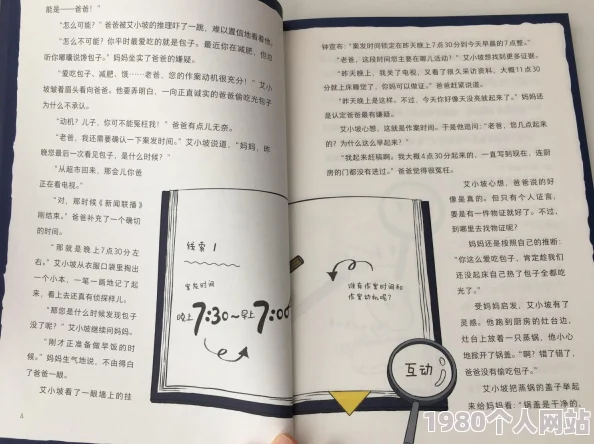 能是——爸爸！”
“怎么可能？”爸爸被艾小坡的推理吓了一跳，难以置信地看着他。
“怎么不可能？你平时最爱吃的就是包子。最近你在减肥，但总
听你嘟囔说馋包子。”妈妈坐实了爸爸的嫌疑。
“爱吃包子、减肥、饿……老爸，您的作案动机很充分！”艾小
坡皱着眉头看向爸爸。他要弄明白，一向正直诚实的爸爸偷吃光包子
为什么不承认。
“动机？儿子，你可不能冤枉我！”爸爸有点儿无奈。
“老爸，我还需要确认一下案发时间。”艾小坡说道，“妈妈，昨
晚您最后一次看见包子，是什么时候？”
“从超市回来，那会儿你爸
正在看电视。”
“对，那时候《新闻联播》
刚结束。”爸爸补充了一个确切
的时间。
“那就是晚上7点30分左
右。”艾小坡从衣服口袋里掏出
一个小本，一笔一画地记了起
来，看上去还真有侦探样儿。
“那您是什么时候发现包子
没了呢？”艾小坡继续问妈妈。
“刚才正准备做早饭的时
候。”妈妈生气地说，不由得白
了爸爸一眼。
艾小坡看了一眼墙上的挂
线索1
案发时间
晚上7:30~早上7:00
4
钟宣布：“案发时间锁定在昨天晚上7点30分到今天早晨的7点整。”
“老爸，这段时间您主要在哪儿活动？”艾小坡想找到更多证据。
“昨天晚上，我关了电视，又看了很久采访资料，大概11点30
分就上床睡觉了，你妈可以做证。”爸爸赶紧说道。
“昨天晚上是这样。不过，今天你好像天没亮就起来了。”妈妈还
是认定爸爸最有嫌疑。
艾小坡心想，这就是作案时间。于是他追问：“老爸，您几点起来
的？为什么这么早起来？”
“我起来赶稿啊。我大概4点30分起来的，一直写到现在，连厨
房的门都没有进过。”爸爸觉得很冤枉。
艾小坡心想，爸爸说的好
像是真的。但只有个人证言，
要是有一件物证就好了。不过，
到哪里去找物证呢？
妈妈还是按照自己的推断：
“你这么爱吃包子，肯定趁我们
还没起床自己热了包子全都吃
光了。”
受妈妈启发，艾小坡有了
灵感。他跑到厨房的灶台边，
灶台上放着一只蒸锅，他小心
地掀开了锅盖。“啊？错了错了，
爸爸没有偷吃包子。”
艾小坡把蒸锅的盖子举起
来给妈妈看：“锅盖是干净的，
谁有作案时间和
作案动机呢？
互动
1980个人网站